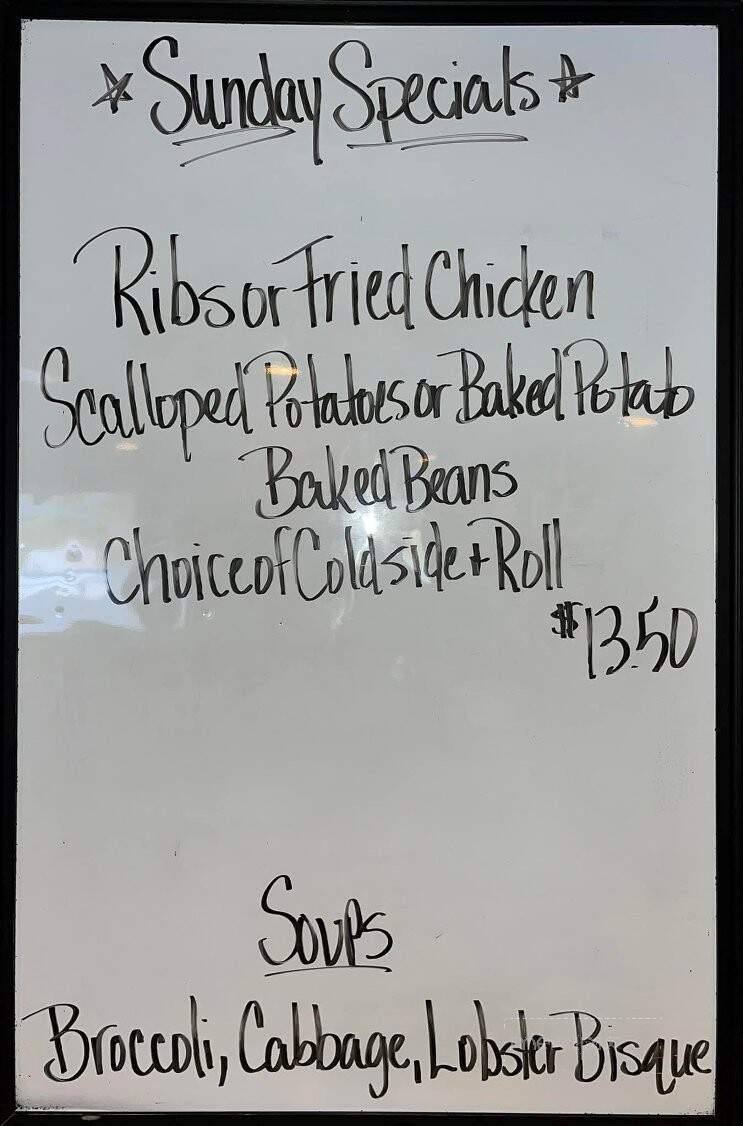 ☆ Sunday Specials ☆
Ribs or Fried Chicken
Scalloped Potatoes or Baked Potato
Baked Beans
Choice of Cold side + Roll
$13.50
Soups
Broccoli, Cabbage, Lobster Bisque